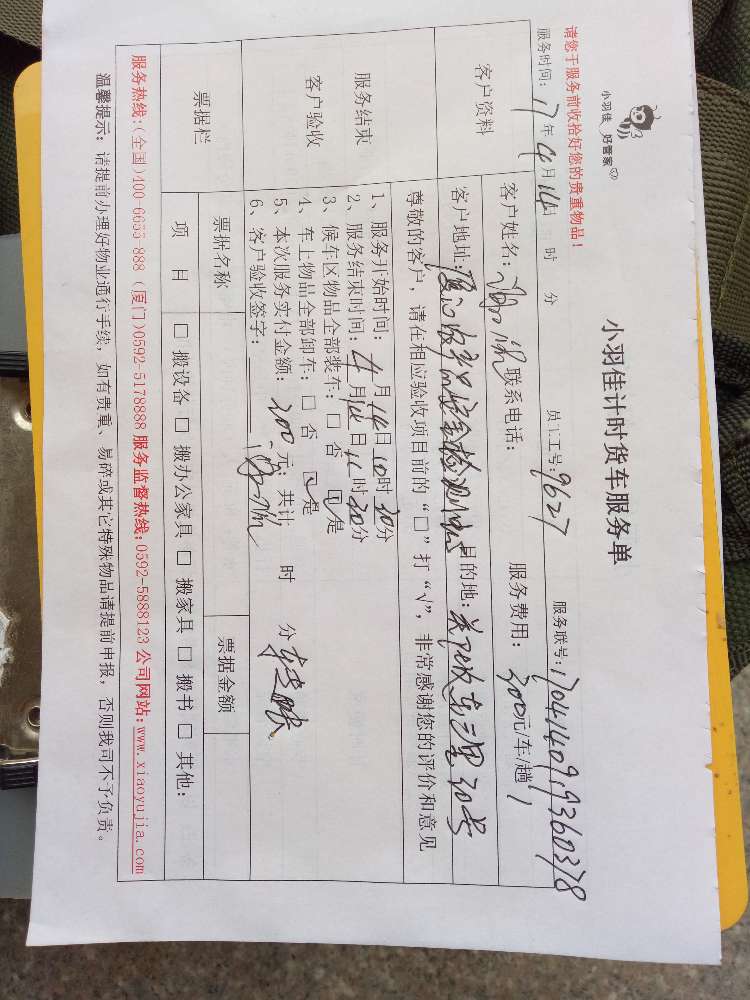 小羽佳 好管家
小羽佳计时货车服务单
请您于服务前收拾好您的贵重物品！
员工工号：9627 服务联号：1704140919360378
服务时间：17年4月14日 时 分
客户资料
客户姓名： 联系电话： 服务费用：200元/车/趟
客户地址： 目的地： 30号
尊敬的客户，请在相应验收项目前的“□”打“√”，非常感谢您的评价和意见
服务结束
客户验收
1、服务开始时间：4月14日10时30分
2、服务结束时间：4月14日11时30分
3、候车区物品全部装车：□ 否 ☑是
4、车上物品全部卸车：□ 否 ☑是
5、本次服务实付金额：200元；共计 时 分
6、客户验收签字：
票据栏 票据名称 票据金额
项 目 □ 搬设备 □ 搬办公家具 □ 搬家具 □ 搬书 □ 其他：
服务热线：(全国)400-6633-888 (厦门)0592-5178888 服务监督热线：0592-5888123 公司网站：www.xiaoyujia.com
温馨提示：请提前办理好物业通行手续，如有贵重、易碎或其它特殊物品请提前申报，否则我司不予负责。